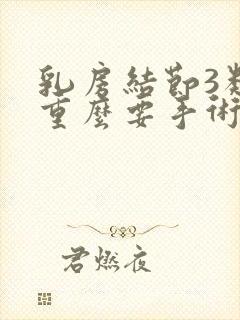 乳房結節3類
重麼要手術
君燃夜